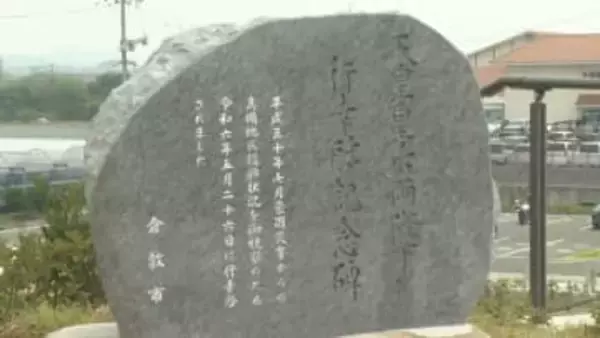 天皇皇后両陛下
行幸啓記念碑
平成三十年七月豪雨災害からの
真備地区復興状況を御視察のため
令和六年五月二十六日に行幸啓
されました
倉敷市